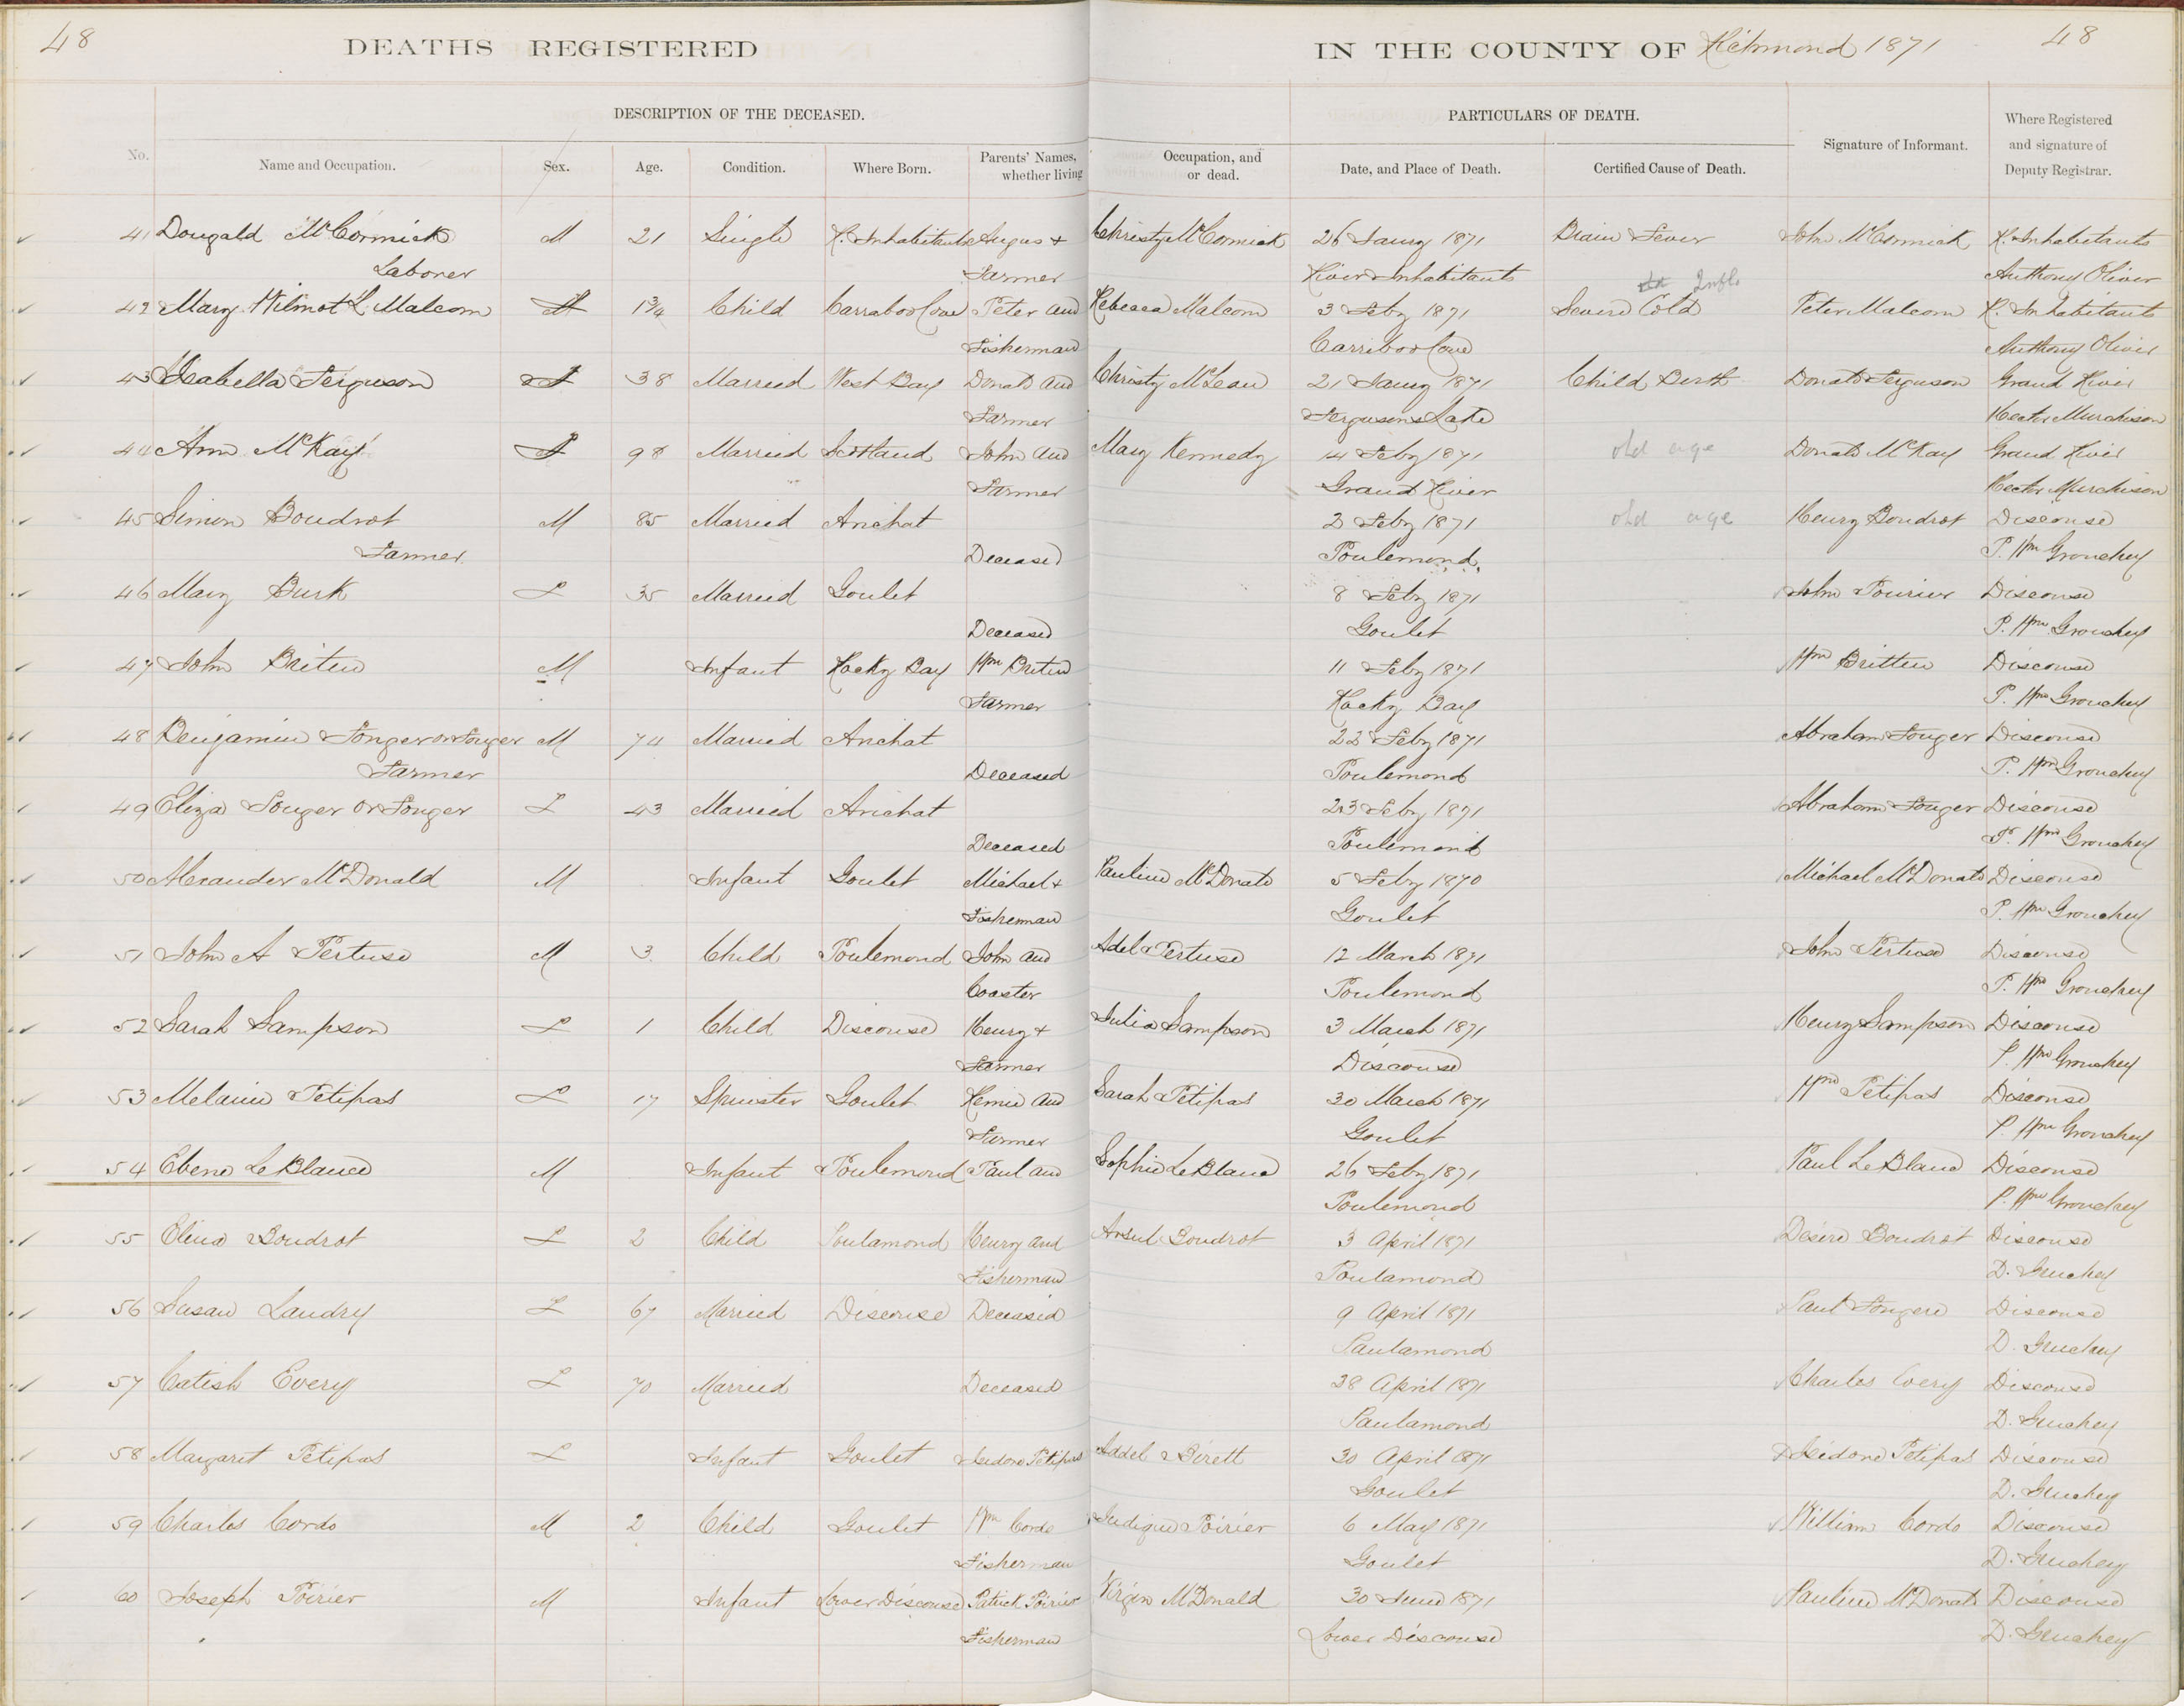 48
DEATHS REGISTERED
IN THE COUNTY OF Richmond 1871
48
DESCRIPTION OF THE DECEASED.
PARTICULARS OF DEATH.
No.
Name and Occupation.
Sex.
Age.
Condition.
Where Born.
Parents' Names, whether living
Occupation, and or dead.
Date, and Place of Death.
Certified Cause of Death.
Signature of Informant.
Where Registered and signature of Deputy Registrar.
41 Dougald McCormick M 21 Single R. Inhabitants Angus + Christy McCormick 26 Jany 1871 Brain Fever John McCormick R. Inhabitants
Laborer Farmer River Inhabitants Anthony Oliver
Infl.
42 Mary Wilmot L. Malcom 1 3/4 Child Carraboo Cove Peter and Rebecca Malcom 3 Feby 1871 Severe Cold Peter Malcom R. Inhabitants
Fisherman Carriboo Cove Anthony Oliver
43 Isabella Ferguson F 38 Married West Bay Donald and Christy McLean 21 Jany 1871 Child Birth Donald Ferguson Grand River
Farmer Fergusons Lake Hector Murchison
44 Ann McKay F 98 Married Scotland John and Mary Kennedy 14 Feby 1871 old age Donald McKay Grand River
Farmer Grand River Hector Murchison
45 Simon Boudrot M 85 Married Arichat 2 Feby 1871 old age Henry Boudrot Discouse
Farmer Deceased Poulemond P. Wm Grouchey
46 Mary Burk F 35 Married Goulet 8 Feby 1871 John Pourier Discouse
Deceased Goulet P. Wm Grouchey
47 John Briten M Infant Rocky Bay Wm Briten 11 Feby 1871 Wm Britten Discouse
Farmer Rocky Bay P. Wm Grouchey
48 Benjamin Fonger or Fouger M 74 Married Arichat 22 Feby 1871 Abraham Fouger Discouse
Farmer Deceased Poulemond P. Wm Grouchey
49 Eliza Fouger or Fonger F 43 Married Arichat 23 Feby 1871 Abraham Fouger Discouse
Deceased Poulemond P. Wm Grouchey
50 Alexander McDonald M Infant Goulet Michael + Pauline McDonald 5 Feby 1870 Michael McDonald Discouse
Fisherman Goulet P. Wm Grouchey
51 John A Pertuse M 3 Child Poulemond John and Adel Pertuse 12 March 1871 John Pertuse Discouse
Coaster Poulemond P. Wm Grouchey
52 Sarah Sampson F 1 Child Discouse Henry + Julia Sampson 3 March 1871 Henry Sampson Discouse
Farmer Discouse P. Wm Grouchey
53 Melanie Petipas F 17 Spinster Goulet Remie and Sarah Petipas 30 March 1871 Wm Petipas Discouse
Farmer Goulet P. Wm Grouchey
54 Ebene LeBlance M Infant Poulemond Paul and Sophie LeBlanc 26 Feby 1871 Paul LeBlanc Discouse
Poulemond P. Wm Grouchey
55 Elina Boudrot F 2 Child Poulamond Henry and Boudrot 3 April 1871 Desire Boudrot Discouse
Fisherman Poulamond D. Gruchey
56 Susan Landry F 67 Married Discouse Deceased 9 April 1871 Paul Fougere Discouse
Paulamond D. Gruchey
57 Catish Every F 70 Married Deceased 28 April 1871 Charles Every Discouse
Paulamond D. Gruchey
58 Margaret Petipas F Infant Goulet Isidore Petipas Addel Birett 30 April 1871 Isidore Petipas Discouse
Goulet D. Gruchey
59 Charles Cordo M 2 Child Goulet Wm Cordo Poirier 6 May 1871 William Cordo Discouse
Fisherman Goulet D. Gruchey
60 Joseph Poirier M Infant Lower Discouse Patrick Poirier Virgin McDonald 30 June 1871 Pauline McDonald Discouse
Fisherman Lower Discouse D. Gruchey